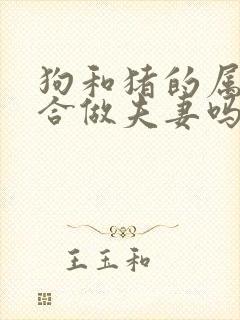 狗和猪的属
合做夫妻吗
王玉和